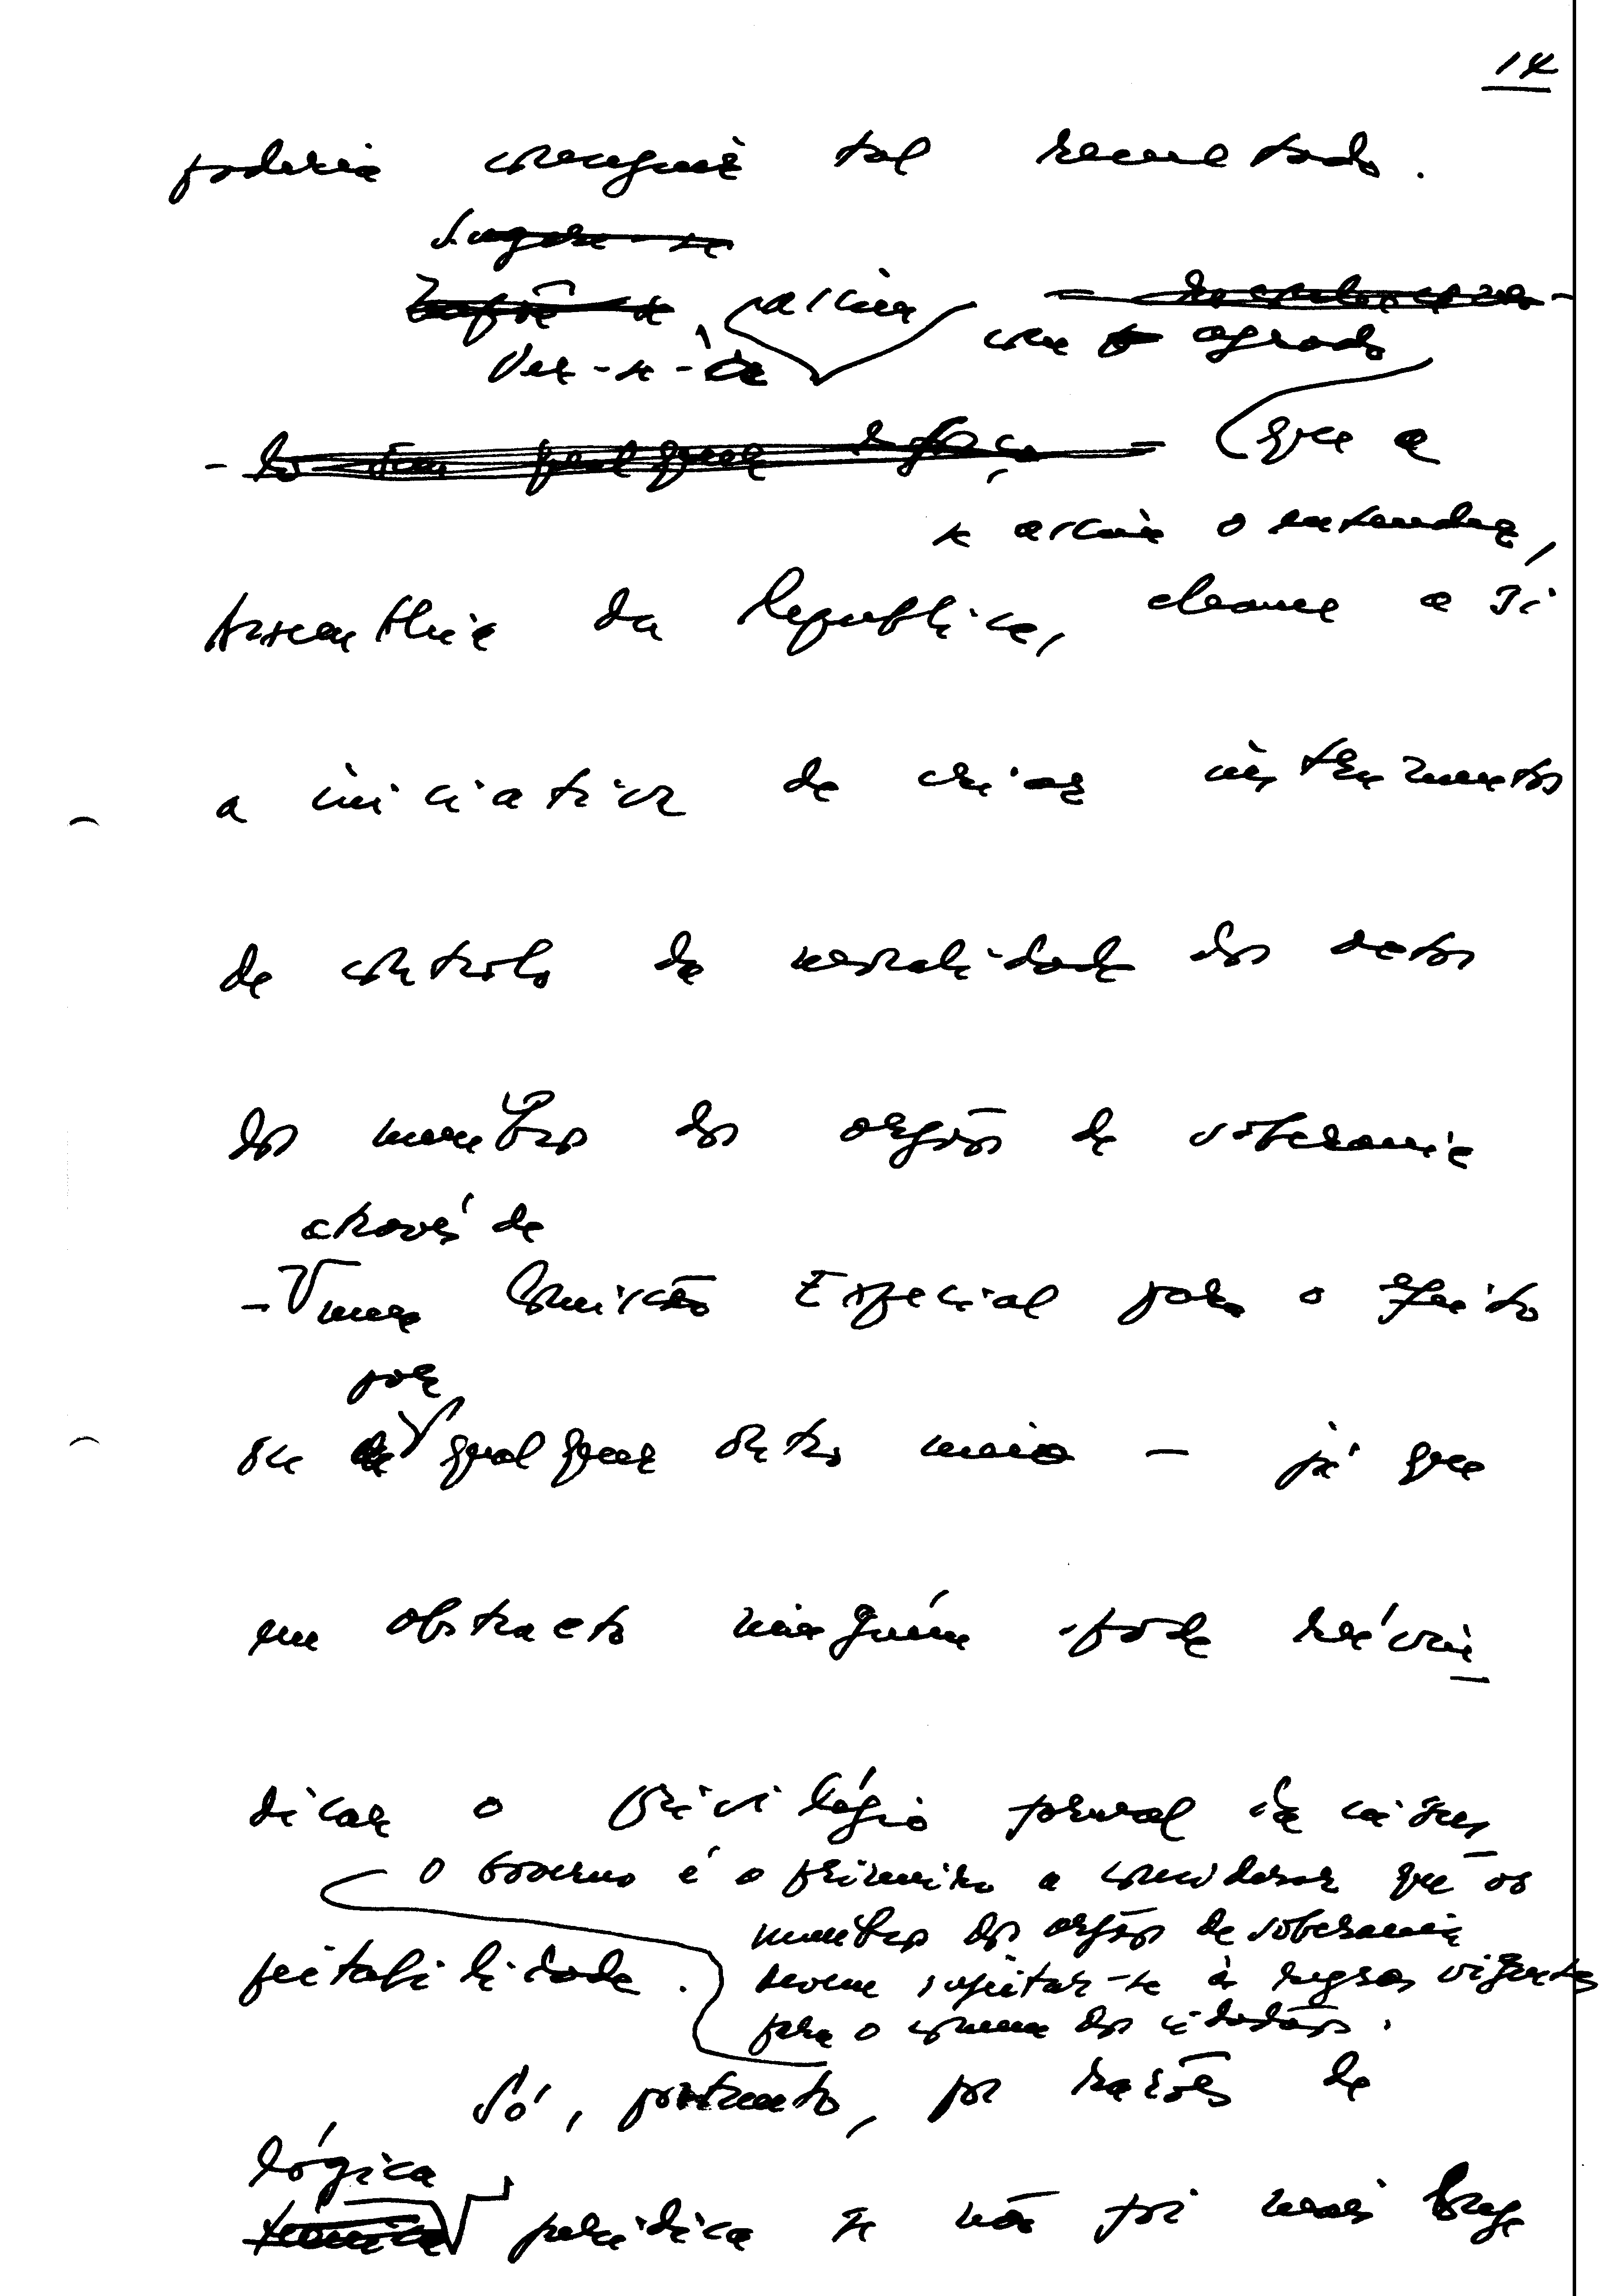 14
poderia conseguir tal resultado.
Sugere-se
Ver-se-ia assim com agrado
que a
se assim o entender,
Assembleia da Republica, chame a si
a iniciativa de criar instrumentos
de controlo da moralidade dos actos
dos membros dos orgãos de soberania
através de
- uma Comissão Especial para o efeito
por
ou de qualquer outro meio - já que
em abstracto ninguém pode reivin
dicar o privilégio formal da insus
O Governo é o primeiro a considerar que os
membros dos orgãos de soberania
peitabilidade. devem sujeitar-se às regras vigentes
para o comum dos cidadãos.
Só, portanto, por razões de
lógica
técnica jurídica se não foi mais longe